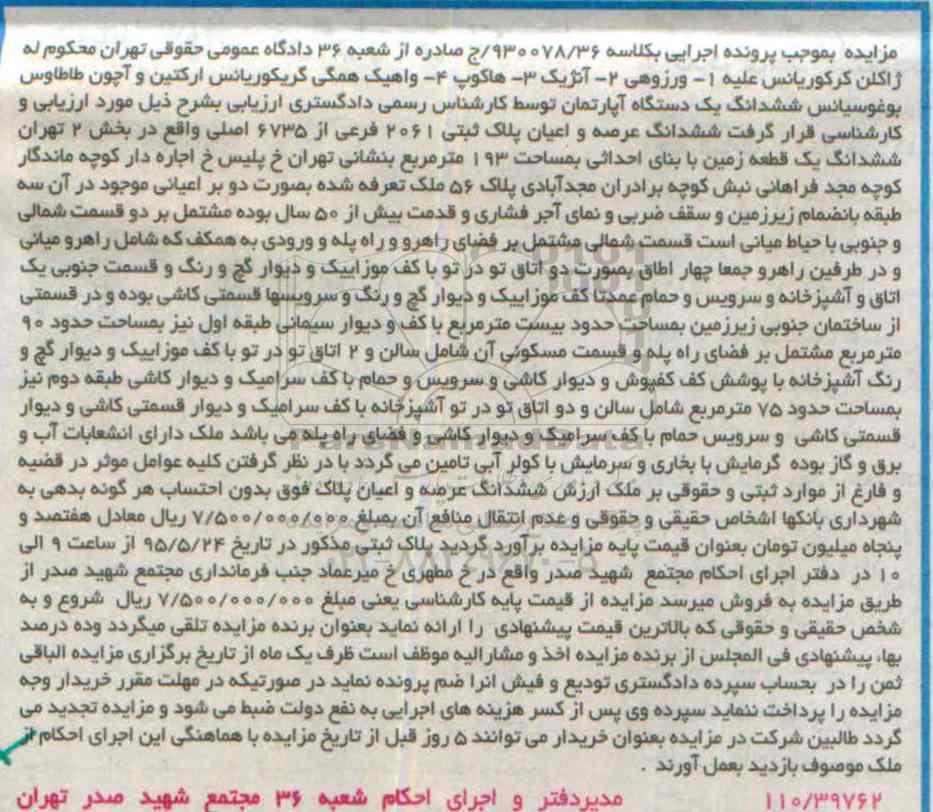 مزایده بموجب پرونده اجرایی بکلاسه ۹۳۰۰۷۸/۳۶/ج صادره از شعبه ۳۶ دادگاه عمومی حقوقی تهران محکوم له
ژاکلن کرکوریانس علیه ۱- ورزوهی ۲- آنژیک ۳- هاکوپ ۴- واهیک همگی گریکوریانس ارکتین و آچون طاطاوس
بوغوسیانس ششدانگ یک دستگاه آپارتمان توسط کارشناس رسمی دادگستری ارزیابی بشرح ذیل مورد ارزیابی و
کارشناسی قرار گرفت ششدانگ عرصه و اعیان پلاک ثبتی ۲۰۶۱ فرعی از ۶۷۳۵ اصلی واقع در بخش ۲ تهران
ششدانگ یک قطعه زمین با بنای احداثی بمساحت ۱۹۳ مترمربع بنشانی تهران خ پلیس خ اجاره دار کوچه ماندگار
کوچه مجد فراهانی نبش کوچه برادران مجدآبادی پلاک ۵۶ ملک تعرفه شده بصورت دو بر اعیانی موجود در آن سه
طبقه بانضمام زیرزمین و سقف ضربی و نمای آجر فشاری و قدمت بیش از ۵۰ سال بوده مشتمل بر دو قسمت شمالی
و جنوبی با حیاط میانی است قسمت شمالی مشتمل بر فضای راهرو و راه پله و ورودی به همکف که شامل راهرو میانی
و در طرفین راهرو جمعا چهار اطاق بصورت دو اتاق تو در تو با کف موزاییک و دیوار گچ و رنگ و قسمت جنوبی یک
اتاق و آشپزخانه و سرویس و حمام عمدتا کف موزاییک و دیوار گچ و رنگ و سرویسها قسمتی کاشی بوده و در قسمتی
از ساختمان جنوبی زیرزمین بمساحت حدود بیست مترمربع با کف و دیوار سیمانی طبقه اول نیز بمساحت حدود ۹۰
مترمربع مشتمل بر فضای راه پله و قسمت مسکونی آن شامل سالن و ۲ اتاق تو در تو با کف موزاییک و دیوار گچ و
رنگ آشپزخانه با پوشش کف کفپوش و دیوار کاشی و سرویس و حمام با کف سرامیک و دیوار کاشی طبقه دوم نیز
بمساحت حدود ۷۵ مترمربع شامل سالن و دو اتاق تو در تو آشپزخانه با کف سرامیک و دیوار قسمتی کاشی و دیوار
قسمتی کاشی و سرویس حمام با کف سرامیک و دیوار کاشی و فضای راه پله می باشد ملک دارای انشعابات آب و
برق و گاز بوده گرمایش با بخاری و سرمایش با کولر آبی تامین می گردد با در نظر گرفتن کلیه عوامل موثر در قضیه
و فارغ از موارد ثبتی و حقوقی بر ملک ارزش ششدانگ عرصه و اعیان پلاک فوق بدون احتساب هر گونه بدهی به
شهرداری بانکها اشخاص حقیقی و حقوقی و عدم انتقال منافع آن بمبلغ ۷/۵۰۰/۰۰۰/۰۰۰ ریال معادل هفتصد و
پنجاه میلیون تومان بعنوان قیمت پایه مزایده برآورد گردید پلاک ثبتی مذکور در تاریخ ۹۵/۵/۲۴ از ساعت ۹ الی
۱۰ در دفتر اجرای احکام مجتمع شهید صدر واقع در خ مطهری خ میرعماد جنب فرمانداری مجتمع شهید صدر از
طریق مزایده به فروش میرسد مزایده از قیمت پایه کارشناسی یعنی مبلغ ۷/۵۰۰/۰۰۰/۰۰۰ ریال شروع و به
شخص حقیقی و حقوقی که بالاترین قیمت پیشنهادی را ارائه نماید بعنوان برنده مزایده تلقی میگردد وده درصد
بهاء پیشنهادی فی المجلس از برنده مزایده اخذ و مشارالیه موظف است ظرف یک ماه از تاریخ برگزاری مزایده الباقی
ثمن را در بحساب سپرده دادگستری تودیع و فیش انرا ضم پرونده نماید در صورتیکه در مهلت مقرر خریدار وجه
مزایده را پرداخت ننماید سپرده وی پس از کسر هزینه های اجرایی به نفع دولت ضبط می شود و مزایده تجدید می
گردد طالبین شرکت در مزایده بعنوان خریدار می توانند ۵ روز قبل از تاریخ مزایده با هماهنگی این اجرای احکام از
ملک موصوف بازدید بعمل آورند .
۱۱۰/۳۹۷۶۲ مدیردفتر و اجرای احکام شعبه ۳۶ مجتمع شهید صدر تهران